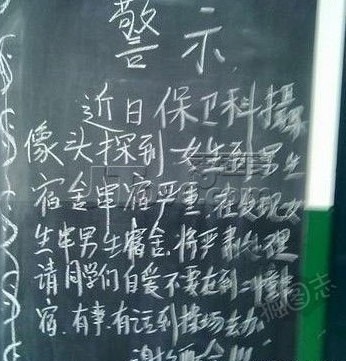 警示
近日保卫科摄
像头探到女生到男生
宿舍串宿严重,在发现女
生串男生宿舍,将严肃处理
请同学们自爱不要在到二楼
宿.有事.有话到操场去办.
谢
搬图志